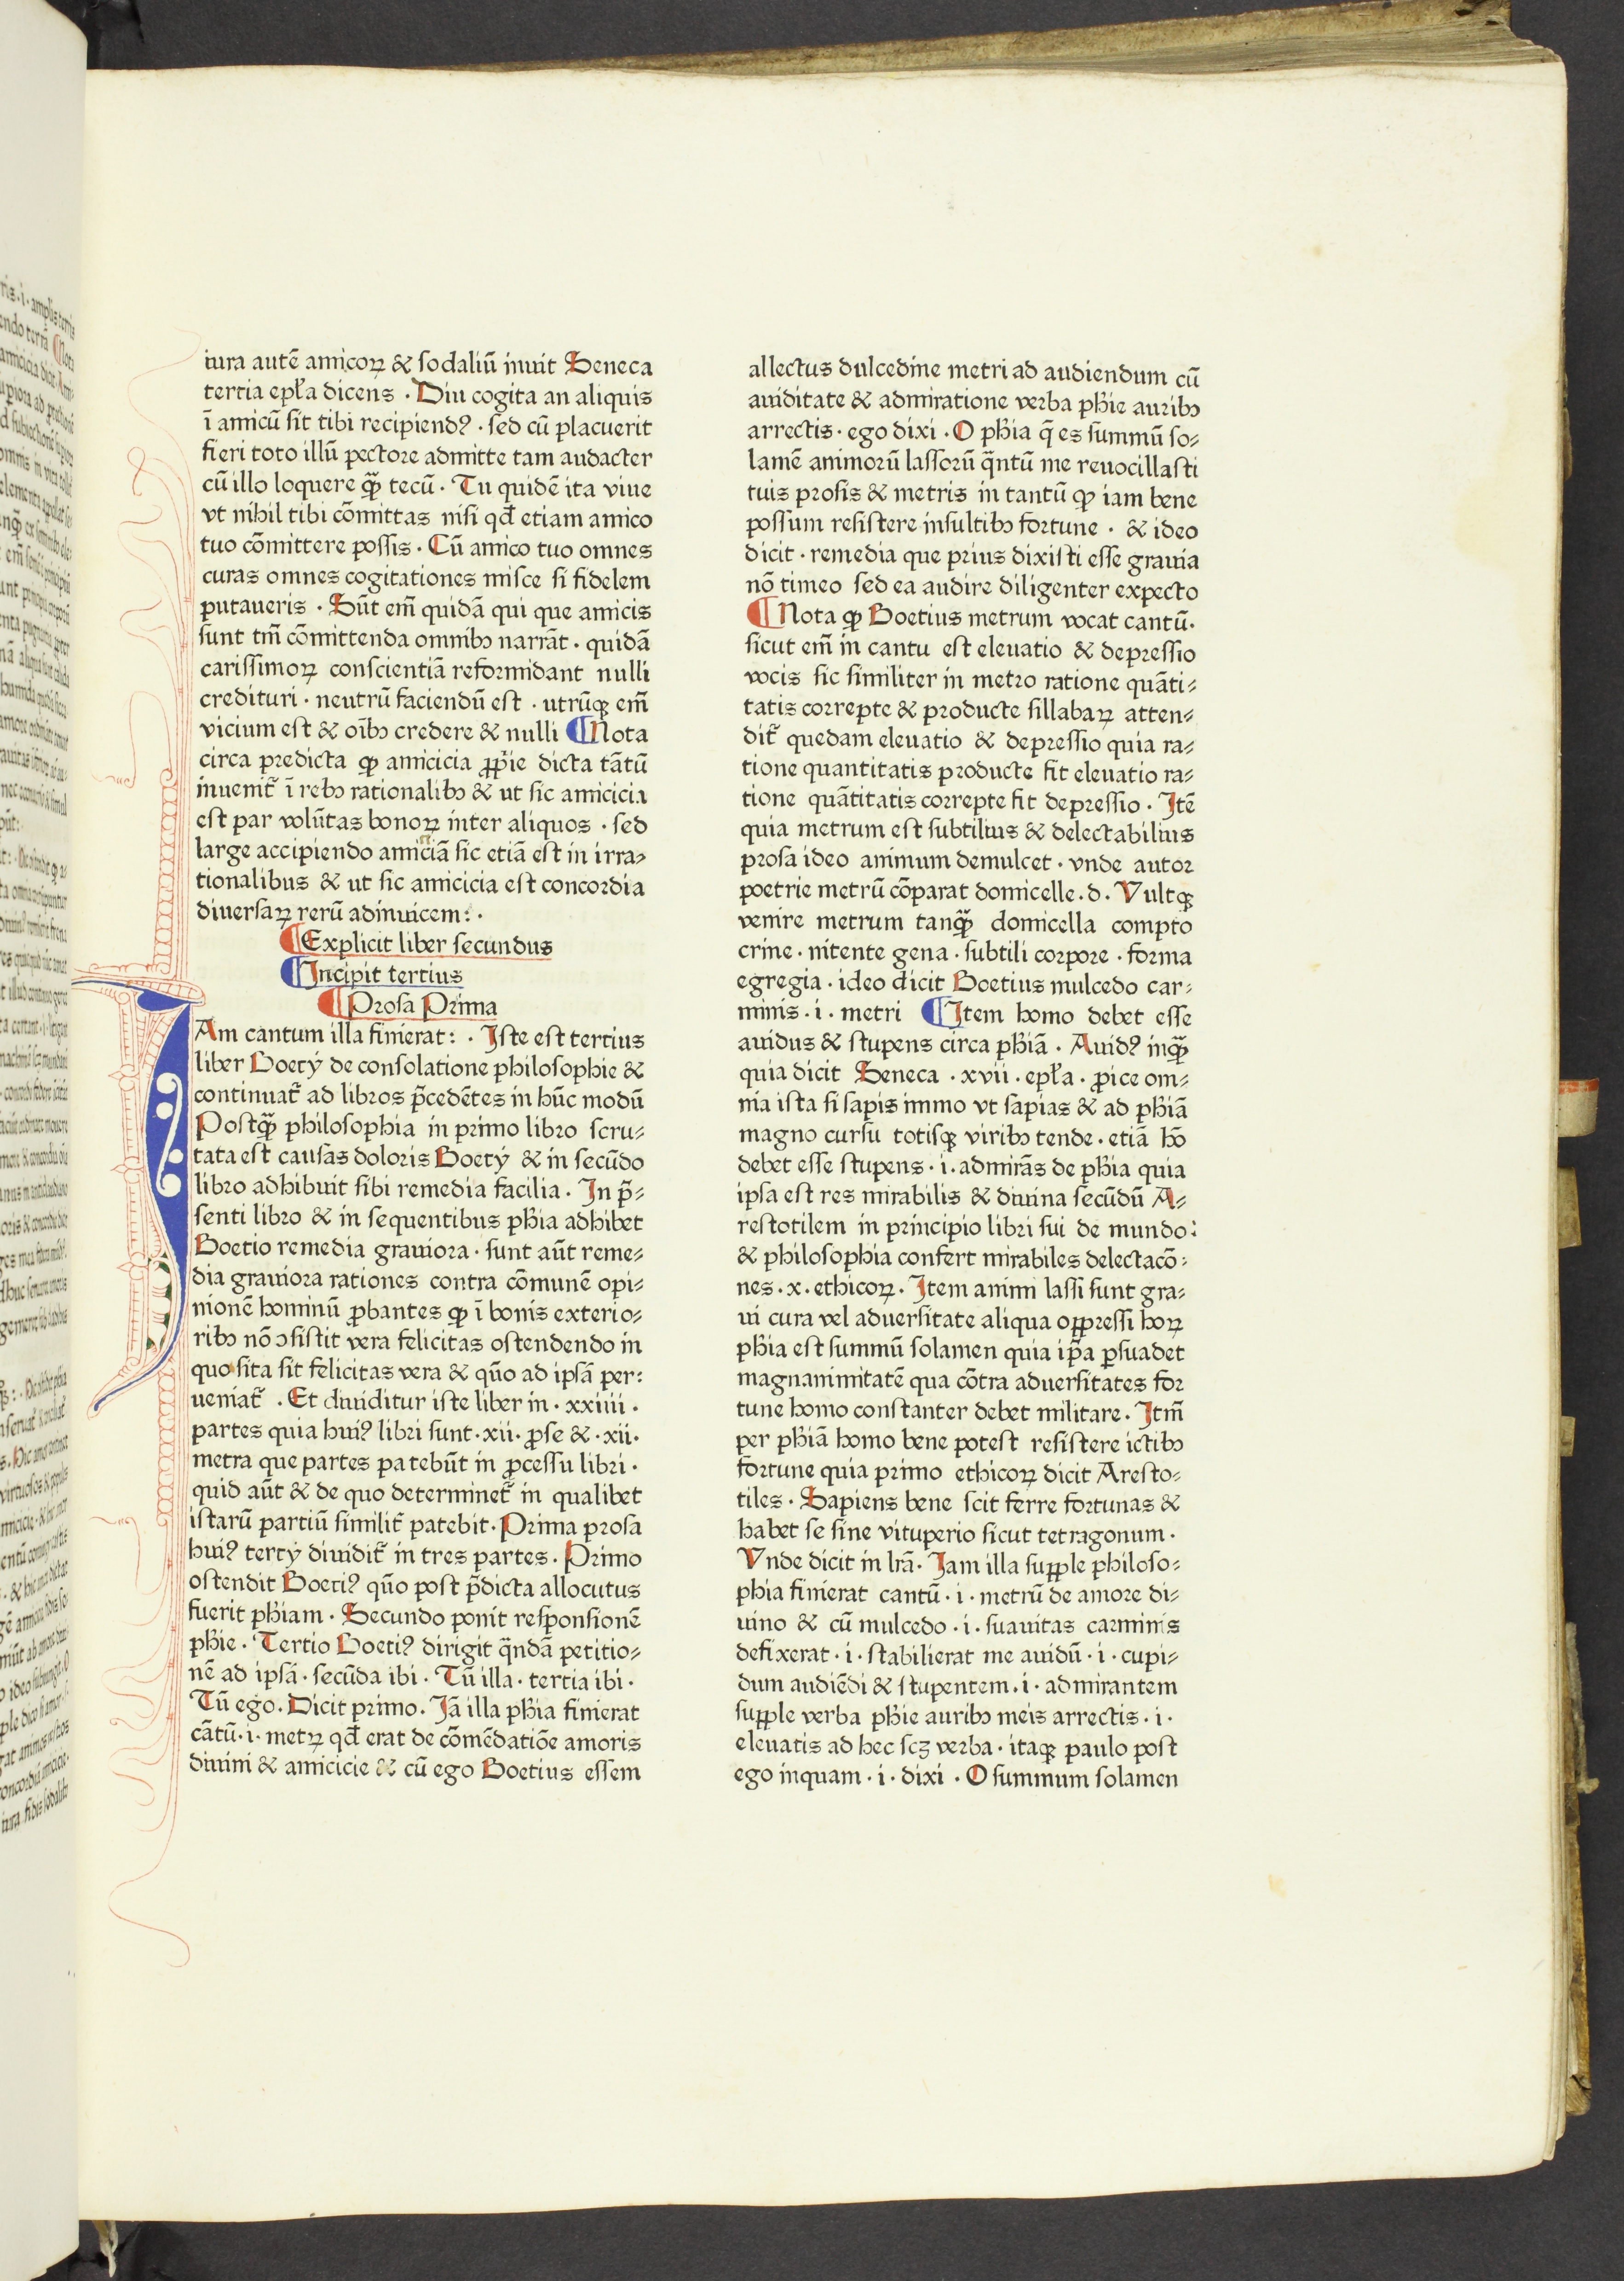 iura autē amicoꝝ & sodaliū innit Seneca
tertia epl̃a dicens · Diu cogita an aliquis
ī amicū sit tibi recipiendꝰ · sed cū placuerit
fieri toto illū pectore admitte tam audacter
cū illo loquere qƷ̃ tecū · Tu quidē ita viue
vt nihil tibi cōmittas nisi qđ etiam amico
tuo cōmittere possis · Cū amico tuo omnes
curas omnes cogitationes misce si fidelem
putaueris · Sūt em̄ quidā qui que amicis
sunt tm̄ cōmittenda omnibꝫ narrāt · quidā
carissimoꝝ conscientiā reformidant nulli
credituri · neutrū faciendū est · utrūqꝫ em̄
vicium est & oībꝫ credere & nulli ¶Nota
circa predicta ꝙ amicicia ꝓprie dicta tātū
inuenit᷑ ī rebꝫ rationalibꝫ & ut sic amicicia
est par volūtas bonoꝝ inter aliquos · sed
large accipiendo amiciā sic etiā est in irra⸗
tionalibus & ut sic amicicia est concordia
diuersaꝝ rerū adinuicem: ·
¶Explicit liber secundus
¶Incipit tertius
¶Prosa Prima
IAm cantum illa finierat: · Iste est tertius
liber Boetÿ de consolatione philosophie &
continuat᷑ ad libros p̄cedētes in hūc modū
Postqƶ̃ philosophia in primo libro scru⸗
tata est causas doloris Boetÿ & in secūdo
libro adhibuit sibi remedia facilia · In p̄⸗
senti libro & in sequentibus phīa adhibet
Boetio remedia grauiora · sunt aūt reme⸗
dia grauiora rationes contra cōmunē opi⸗
nionē hominū ꝓbantes ꝙ ī bonis exterio⸗
ribꝫ nō ↄsistit vera felicitas ostendendo in
quo sita sit felicitas vera & qūo ad ipsā per:
ueniat᷑ · Et diuiditur iste liber in · xxiiii ·
partes quia huiꝰ libri sunt · xii · ꝓse & · xii ·
metra que partes patebūt in ꝓcessu libri ·
quid aūt & de quo determinet᷑ in qualibet
istarū partiū similit᷑ patebit · Prima prosa
huiꝰ tertÿ diuidit᷑ in tres partes · Primo
ostendit Boetiꝰ qūo post p̄dicta allocutus
fuerit phīam · Secundo ponit responsionē
phīe · Tertio Boetiꝰ dirigit q̄ndā petitio⸗
nē ad ipsā · secūda ibi · Tū illa · tertia ibi ·
Tū ego · Dicit primo · Iā illa phīa finierat
cātū · i · metꝝ qđ erat de cōmēdatiōe amoris
diuini & amicicie & cū ego Boetius essem
allectus dulcedine metri ad audiendum cū
auiditate & admiratione verba phīe auribꝫ
arrectis · ego dixi · O phīa q̄ es summū so⸗
lamē animorū lassorū q̄ntū me reuocillasti
tuis prosis & metris in tantū ꝙ iam bene
possum resistere insultibꝫ fortune · & ideo
dicit · remedia que prius dixisti esse grauia
nō timeo sed ea audire diligenter expecto
¶Nota ꝙ Boetius metrum vocat cantū ·
sicut em̄ in cantu est eleuatio & depressio
vocis sic similiter in metro ratione quāti⸗
tatis correpte & producte sillabaꝝ atten⸗
dit᷑ quedam eleuatio & depressio quia ra⸗
tione quantitatis producte fit eleuatio ra⸗
tione quātitatis correpte fit depressio · Itē
quia metrum est subtilius & delectabilius
prosa ideo animum demulcet · vnde autor
poetrie metrū cōparat domicelle · d · Vultqꝫ
venire metrum tanqƶ̃ domicella compto
crine · nitente gena · subtili corpore · forma
egregia · ideo dicit Boetius mulcedo car⸗
minis · i · metri ¶Item homo debet esse
auidus & stupens circa phīā · Auidꝰ inqƶ̃
quia dicit Seneca · xvii · epl̃a · ꝓice om⸗
nia ista si sapis immo vt sapias & ad phīā
magno cursu totisqꝫ viribꝫ tende · etiā hō
debet esse stupens · i · admirās de phīa quia
ipsa est res mirabilis & diuina secūdū A⸗
restotilem in principio libri sui de mundo:
& philosophia confert mirabiles delectacō⸗
nes · x · ethicoꝝ · Item animi lassi sunt gra⸗
ui cura vel aduersitate aliqua oppressi hoꝝ
phīa est summū solamen quia ip̄a ꝑsuadet
magnanimitatē qua cōtra aduersitates for
tune homo constanter debet militare · Itm̄
per phīā homo bene potest resistere ictibꝫ
fortune quia primo ethicoꝝ dicit Aresto⸗
tiles · Sapiens bene scit ferre fortunas &
habet se sine vituperio sicut tetragonum ·
Vnde dicit in lr̄a · Iam illa supple philoso⸗
phia finierat cantū · i · metrū de amore di⸗
uino & cū mulcedo · i · suauitas carminis
defixerat · i · stabilierat me auidū · i · cupi⸗
dum audiēdi & stupentem · i · admirantem
supple verba phīe auribꝫ meis arrectis · i ·
eleuatis ad hec scꝫ verba · itaqꝫ paulo post
ego inquam · i · dixi · O summum solamen